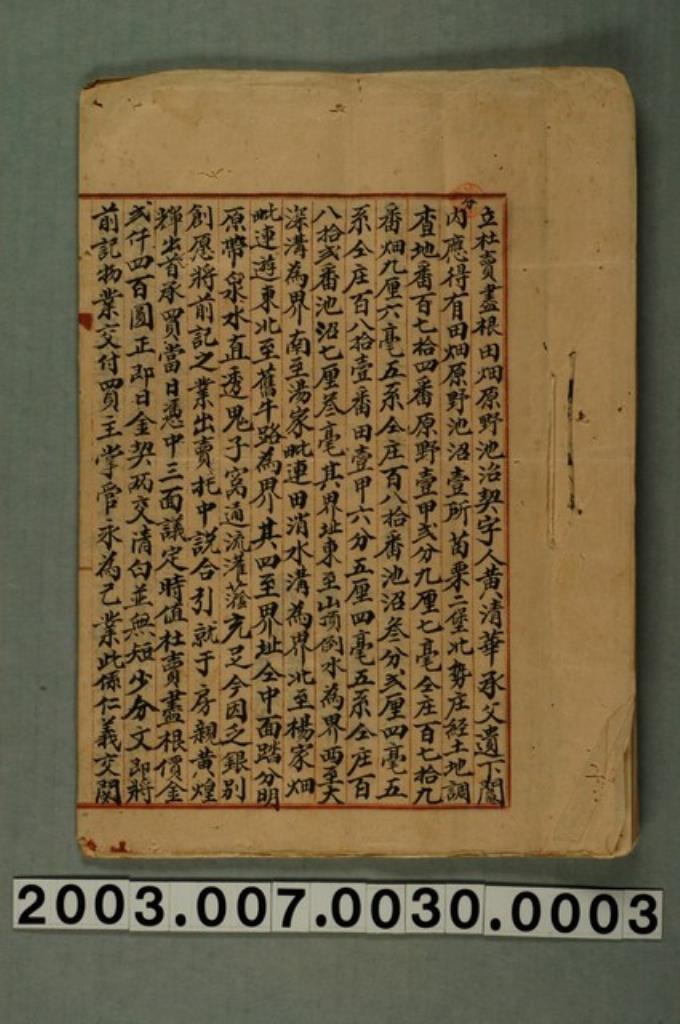 立杜賣盡根田畑原野池治契字人黃清華承父遺下鬮
分內應得有田畑原野池沼壹所茵栗二堡北勢庄經土地調
查地番百七拾四番原野壹甲弍分九厘七毫仝庄百七拾九
番畑九厘六毫五系仝庄百八拾番池沼叁分弍厘四毫五
系仝庄百八拾壹番田壹甲六分五厘四毫五系仝庄百
八拾弍番池沼七厘叁毫其界址東至山頂倒水為界西至大
深溝為界南至湯家毗連田消水溝為界北至楊家畑
毗連遊東北至舊牛路為界其四至界址仝中面踏分明
原帶泉水直透鬼子窩通流灌蔭充足今因乏銀別
創愿將前記之業出賣托中説合引就于房親黃煌
輝出首承買當日憑中三面議定時值杜賣盡根價金
弍仟四百圓正即日金契两交清白並無短少分文即將
前記物業交付買主掌管永為己業此係仁義交関
2003.007.0030.0003